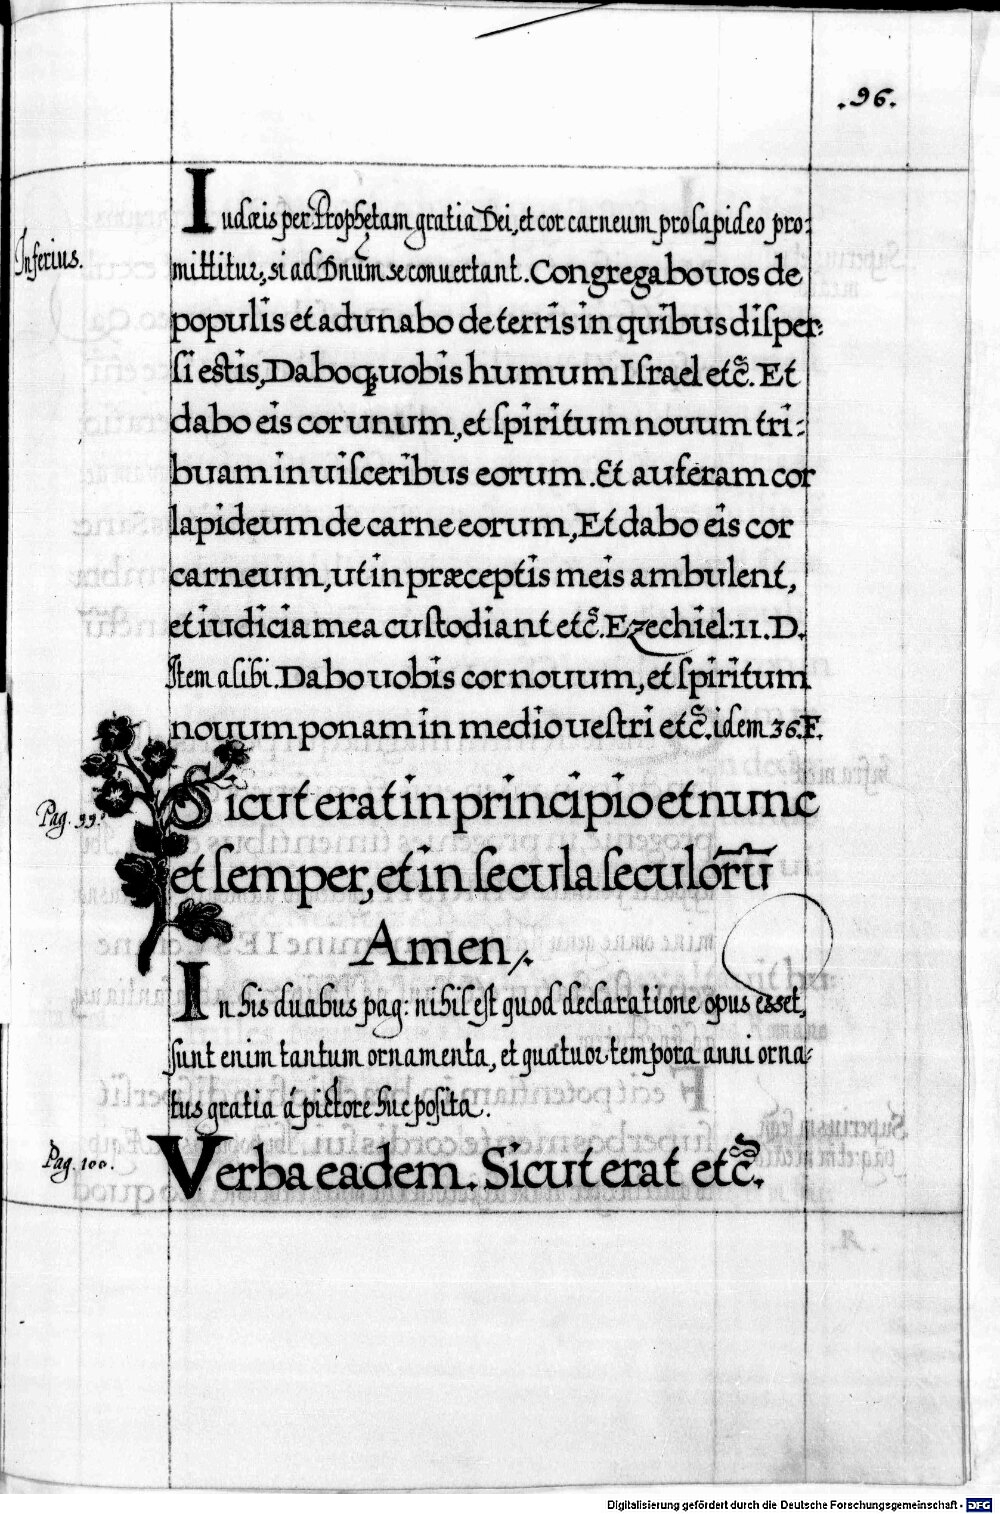 .96.
Iudæis per Prophetam gratia Dei, et cor carneum pro lapideo pro-
Inferius.
mittitur, si ad Dnūm se conuertant. Congregabo uos de
populis et adunabo de terris in quibus disper-
si estis, Daboq; uobis humum Israel etc̃. Et
dabo eis cor unum, et spiritum nouum tri-
buam in uisceribus eorum. Et auferam cor
lapideum de carne eorum, Et dabo eis cor
carneum, ut in præceptis meis ambulent,
et iudicia mea custodiant etc̃. Ezechiel: 11. D.
Item alibi. Dabo uobis cor nouum, et spiritum
nouum ponam in medio uestri etc̃. idem 36. F.
Pag. 99.
Sicut erat in principio et nunc
et semper, et in secula seculorũ
Amen.
In his duabus pag: nihil est quod declaratione opus esset,
sunt enim tantum ornamenta, et quatuor tempora anni orna-
tus gratia á pictore huc posita.
Pag. 100.
Verba eadem. Sicut erat etc̃.
Digitalisierung gefördert durch die Deutsche Forschungsgemeinschaft - DFG